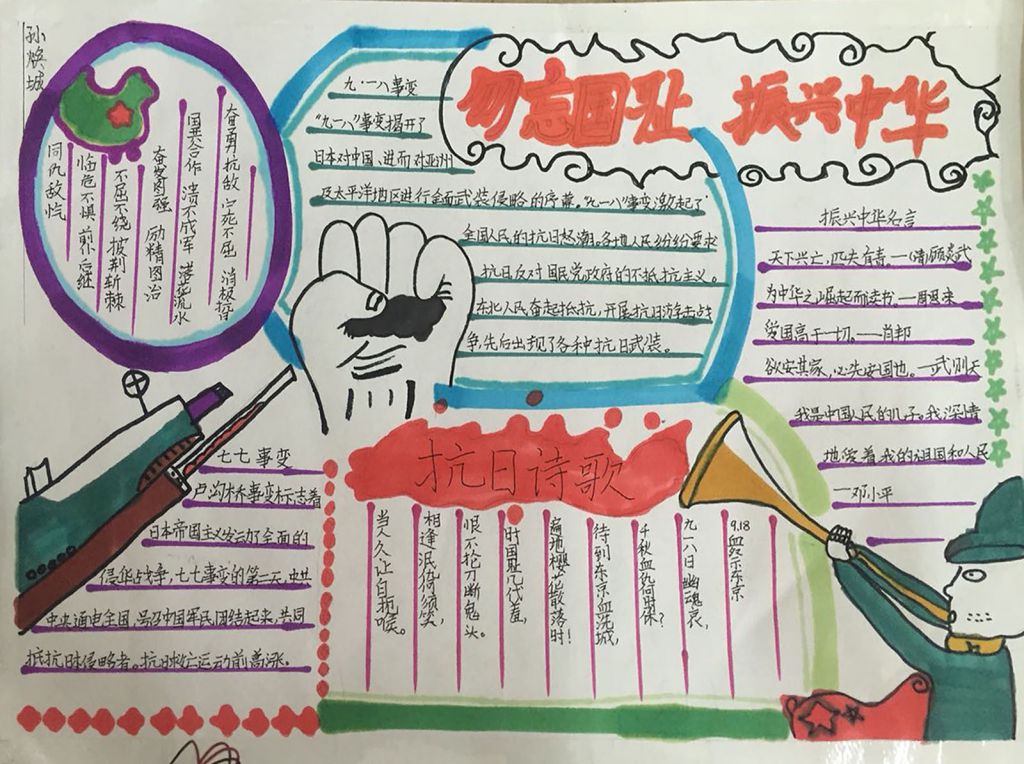 孙焕城
勿忘国耻 振兴中华
奋勇抗敌 宁死不屈 消极抵
国共合作 溃不成军 落花流水
奋发图强 励精图治
不屈不绕 披荆斩棘
临危不惧 前仆后继
同仇敌忾
九·一八事变
“九一八”事变揭开了
日本对中国、进而对亚洲
及太平洋地区进行全面武装侵略的序幕。“九一八”事变激起了
全国人民的抗日怒潮。各地人民纷纷要求
抗日反对国民党政府的不抵抗主义。
东北人民奋起抵抗，开展抗日游击战
争，先后出现了各种抗日武装。
振兴中华名言
天下兴亡，匹夫有责。—(清)顾炎武
为中华之崛起而读书。—周恩来
爱国高于一切。——肖邦
欲安其家，必先安国也。—武则天
我是中国人民的儿子。我深情
地爱着我的祖国和人民
—邓小平
七七事变
卢沟桥事变标志着
日本帝国主义发动了全面的
侵华战争，七七事变的第二天，中共
中央通电全国，号召中国军民团结起来，共同
抵抗日本侵略者。抗日救亡运动前高涨。
抗日诗歌
9.18血祭东京
九一八日幽魂哀，
千秋血仇何时休？
待到东京血洗城，
遍地樱花散落时！
时国耻几代羞，
恨不抡刀断鬼头。
相逢泯倚须笑，
当久久让白扼喉。